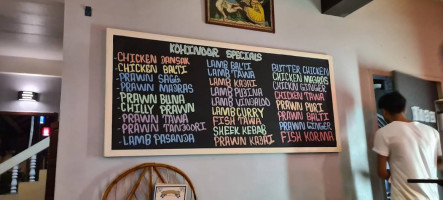 KOHINOOR SPECIALS
CHICKEN DANSAK
CHICKEN BALTI
PRAWN SAGG
PRAWN MADRAS
PRAWN BUNA
CHILLY PRAWN
PRAWN TAWA
PRAWN TANJOORI
LAMB PASANJA
LAMB BALTI
LAMB TAWA
LAMB KADAI
LAMB PUDINA
LAMB VINDALOO
LAMB CURRY
FISH TAWA
SHEEK KEBAB
PRAWN KADAI
BUTTER CHICKEN
CHICKEN MADRAS
CHICKEN GINGER
CHICKEN TAWA
PRAWN PURI
PRAWN BALTI
PRAWN GINGER
FISH KORMA